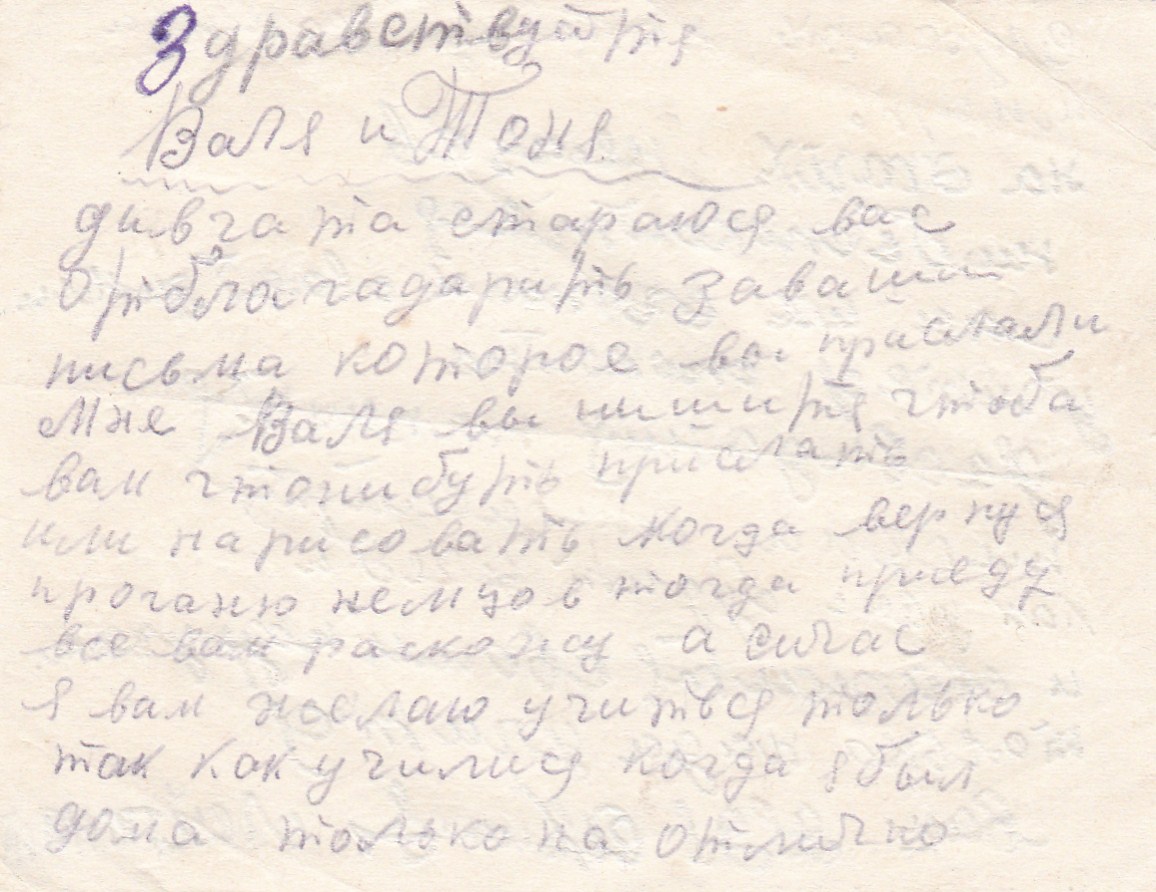 Здравствуйтя
Валя и Тоня
дивчата стараюся вас
отблагадарить заваши
письма которое вы прислали
мне Валя вы пишитя чтоба
вам чтонибуть прислать
или нарисовать когда вернуся
проганю немцов тогда приеду
все вам раскожу а сичас
я вам желаю учиться только
так как училися когда я был
дома только на отлично